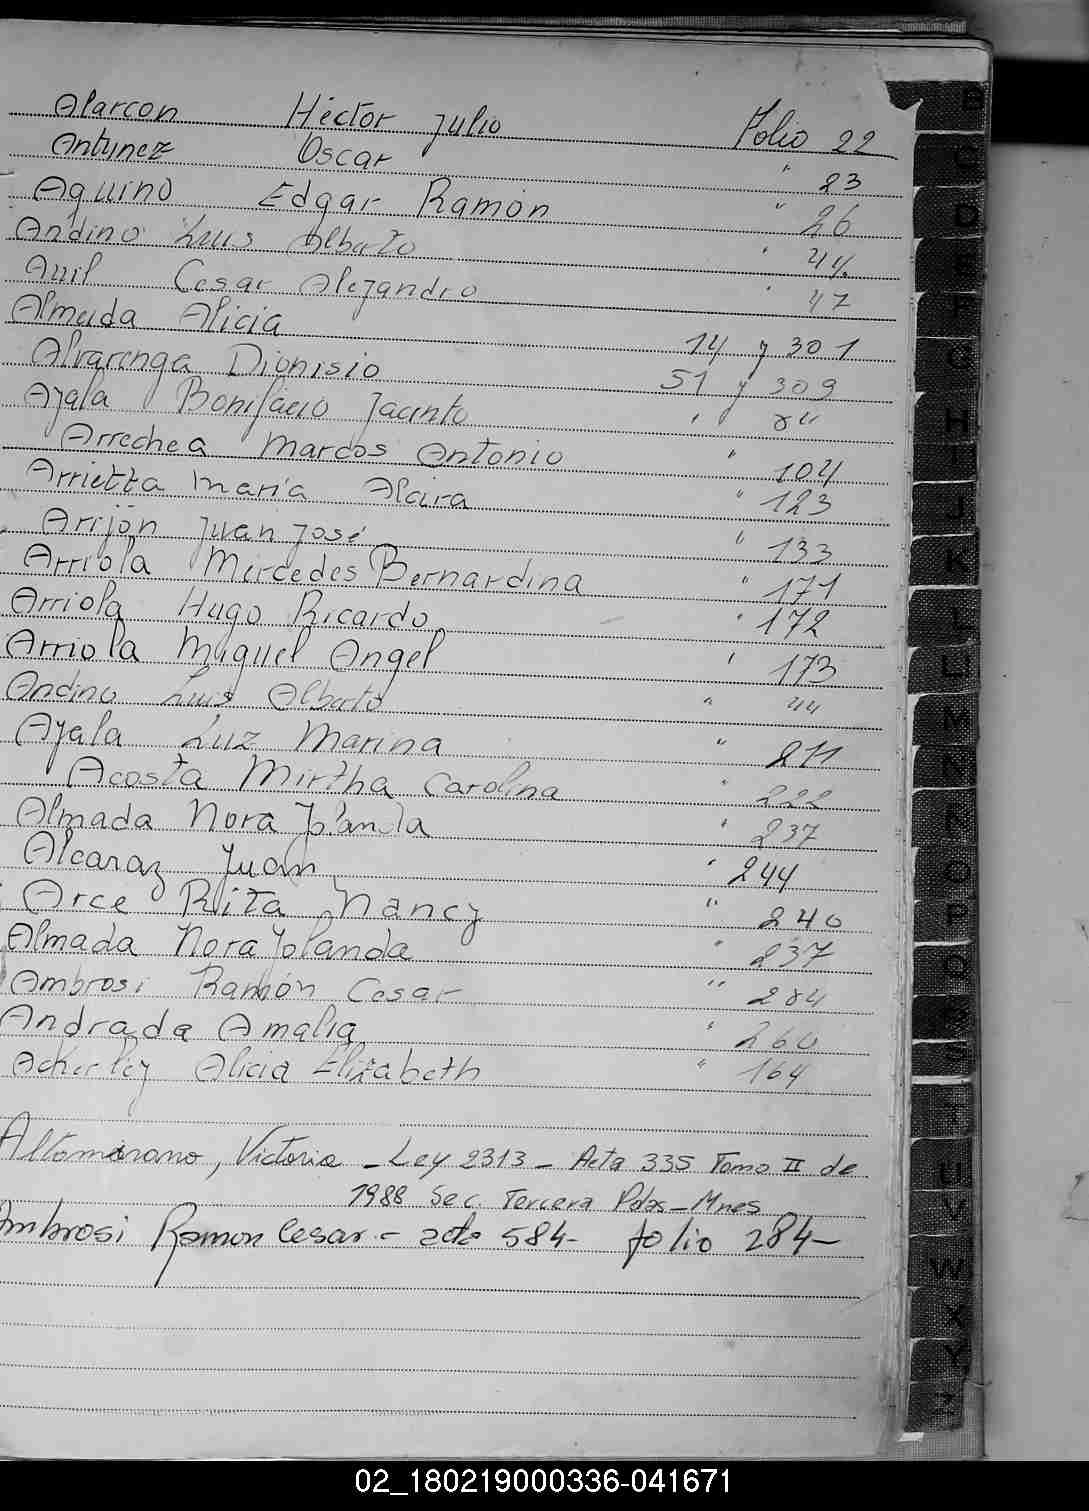 Alarcon Héctor Julio Folio 22
Antunez Oscar " 23
Aquino Edgar Ramón " 26
Andino Luis Alberto " 44
Avil Cesar Alejandro " 47
Almeida Alicia 14 y 301
Alvarenga Dionisio 51 y 309
Ayala Bonifacio Jacinto "
Arrechea Marcos Antonio " 104
Arrietta Maria Alcira " 123
Arrijón Juan José " 133
Arriola Mercedes Bernardina " 171
Arriola Hugo Ricardo " 172
Arriola Miguel Angel " 173
Andino Luis Alberto " 44
Ayala Luz Marina " 211
Acosta Mirtha Carolina " 222
Almada Nora Yolanda " 237
Alcaraz Juan " 244
Arce Rita Nancy " 240
Almada Nora Yolanda " 237
Ambrosi Ramón Cesar " 284
Andrada Amalia " 260
Ackerley Alicia Elizabeth " 164
Altamirano, Victoria - Ley 2313 - Acta 335 Tomo II de
1988 Sec. Tercera Pdas - Mnes
Ambrosi Ramon Cesar - acta 584 - folio 284 -
B
C
D
E
F
G
H
I
J
K
L
LL
M
N
Ñ
O
P
Q
R
S
T
U
V
W
X
Y
Z
02_180219000336-041671